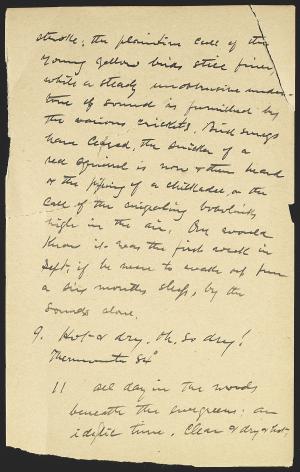 stroke; the plaintive call of the
young yellow birds still finer,
while a steady unobtrusive under-
tone of sound is furnished by
the various crickets. Bird songs
have ceased, the snicker of a
red squirrel is now & then heard
or the piping of a chickadee, or the
call of the migrating bowlinks
high in the air. One would
know it was the first week in
Sept. if he were to wake up from
a six months sleep, by the
sounds alone.
9. Hot & dry. Oh, so dry!
Thermometer 84°
11 all day in the woods
beneath the evergreens: an
idyllic time. Clear & dry & hot.